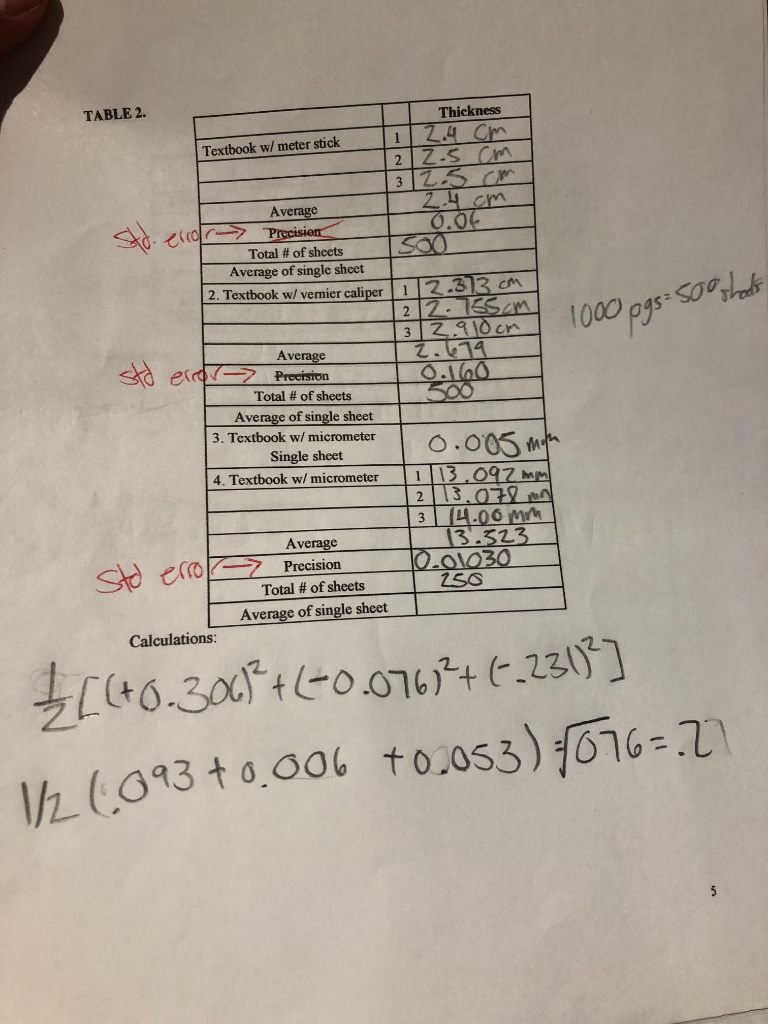 TABLE 2.
Thickness
Textbook w/ meter stick 1 2.4 cm
2 2.5 cm
3 2.5 cm
Average 2.4 cm
Std. error → Precision 0.06
Total # of sheets 500
Average of single sheet
2. Textbook w/ vernier caliper 1 2.373 cm
2 2.755cm
3 2.910cm
1000 pgs = 500 sheets
Average 2.679
Std error → Precision 0.160
Total # of sheets 500
Average of single sheet
3. Textbook w/ micrometer
Single sheet 0.005 mm
4. Textbook w/ micrometer 1 13.092 mm
2 13.078 mm
3 14.00 mm
Average 13.523
Std error → Precision 0.01030
Total # of sheets 250
Average of single sheet
Calculations:
1/2 [(+0.306)² + (-0.076)² + (-.231)²]
1/2 (.093 + 0.006 + 0.053) = √076 = .27
5